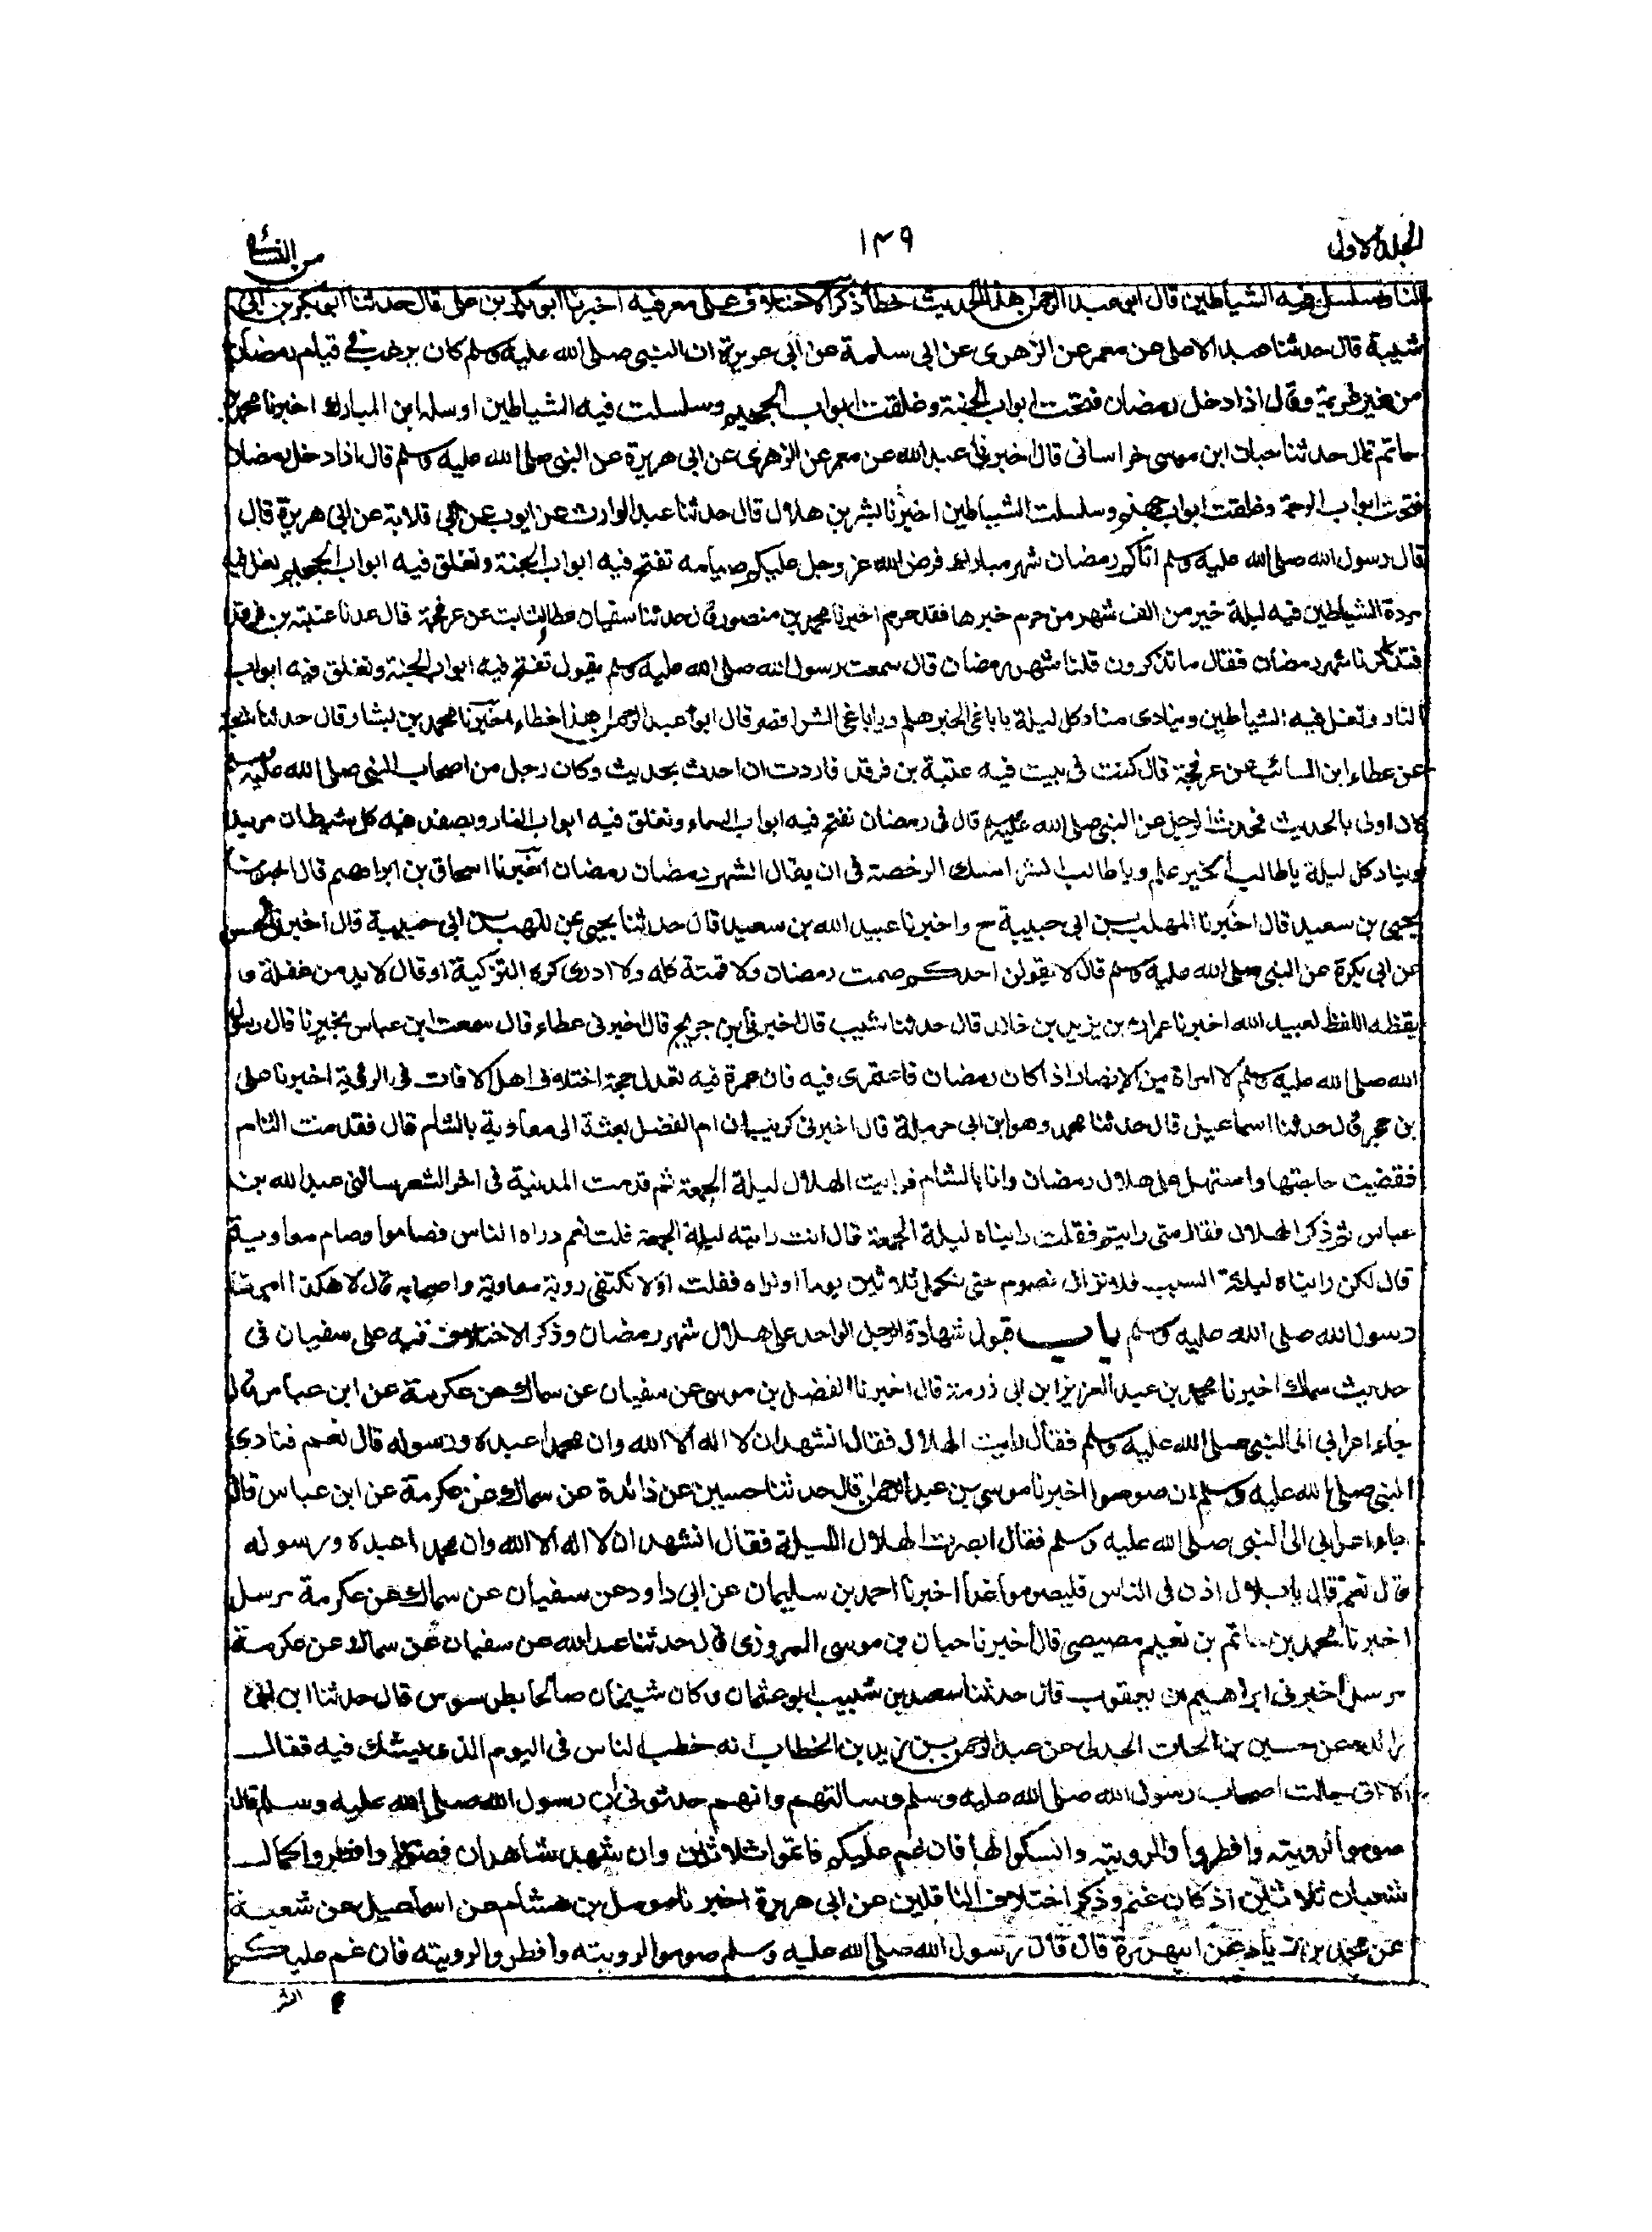 الجلد الاول
١٤٩
من النسائ
النار وسلسل فيه الشياطين قال ابو عبد الرحمن هذا الحديث خطأ ذكر الاختلاف على معمر فيه اخبرنا ابو بكر بن على قال حدثنا ابو بكر بن ابى
شيبة قال حدثنا عبد الاعلى عن معمر عن الزهرى عن ابى سلمة عن ابى هريرة ان النبى صلى الله عليه وسلم كان يرغب فى قيام رمضان
من غير عزيمة وقال اذا دخل رمضان فتحت ابواب الجنة وغلقت ابواب الجحيم وسلسلت فيه الشياطين ارسله ابن المبارك اخبرنا محمد بن
حاتم قال حدثنا حبان ابن موسى خراسانى قال اخبرنا عبد الله عن معمر عن الزهرى عن ابى هريرة عن النبى صلى الله عليه وسلم قال اذا دخل رمضان
فتحت ابواب الرحمة وغلقت ابواب جهنم وسلسلت الشياطين اخبرنا بشر بن هلال قال حدثنا عبد الوارث عن ايوب عن ابى قلابة عن ابى هريرة قال
قال رسول الله صلى الله عليه وسلم اتاكم رمضان شهر مبارك فرض الله عز وجل عليكم صيامه تفتح فيه ابواب الجنة وتغلق فيه ابواب الجحيم تغل فيه
مردة الشياطين فيه ليلة خير من الف شهر من حرم خيرها فقد حرم اخبرنا محمد بن منصور قال حدثنا سفيان عن عرفجة قال عدنا عتبة بن فرقد
فتذكرنا شهر رمضان فقال ما تذكرون قلنا شهر رمضان قال سمعت رسول الله صلى الله عليه وسلم يقول تفتح فيه ابواب الجنة وتغلق فيه ابواب
النار وتغل فيه الشياطين وينادى مناد كل ليلة يا باغى الخير هلم ويا باغى الشر اقصر قال ابو عبد الرحمن هذا خطاء اخبرنا محمد بن بشار قال حدثنا شعبة
عن عطاء ابن السائب عن عرفجة قال كنت فى بيت فيه عتبة بن فرقد فاردت ان احدث بحديث وكان رجل من اصحاب النبى صلى الله عليه وسلم
كان اولى بالحديث فحدث الرجل عن النبى صلى الله عليه وسلم قال فى رمضان تفتح فيه ابواب السماء وتغلق فيه ابواب النار ويصفد فيه كل شيطان مريد
وينادى كل ليلة يا طالب الخير هلم ويا طالب الشر امسك الرخصة فى ان يقال لشهر رمضان رمضان اخبرنا اسحاق بن ابراهيم قال اخبرنا
يحيى بن سعيد قال اخبرنا المهلب بن ابى حبيبة ح واخبرنا عبيد الله بن سعيد قال حدثنا يحيى عن المهلب بن ابى حبيبة قال اخبرنى الحسن
عن ابى بكرة عن النبى صلى الله عليه وسلم قال لا يقولن احدكم صمت رمضان ولا قمته كله ولا ادرى كره التزكية او قال لا بد من غفلة و
يقظة اللفظ لعبيد الله اخبرنا عمران بن يزيد بن خالد قال حدثنا شعيب قال اخبرنى ابن جريج قال اخبرنى عطاء قال سمعت ابن عباس يخبرنا قال رسول
الله صلى الله عليه وسلم لامراة من الانصار اذا كان رمضان فاعتمرى فيه فان عمرة فيه تعدل حجة اختلاف اهل الافاق فى الروية اخبرنا على
بن حجر قال حدثنا اسماعيل قال حدثنا محمد وهو ابن ابى حرملة قال اخبرنى كريب ان ام الفضل بعثته الى معاوية بالشام قال فقدمت الشام
فقضيت حاجتها واستهل على هلال رمضان وانا بالشام فرايت الهلال ليلة الجمعة ثم قدمت المدينة فى اخر الشهر سالنى عبد الله بن
عباس ثم ذكر الهلال فقال متى رايتم فقلت رايناه ليلة الجمعة قال انت رايته ليلة الجمعة قلت نعم وراه الناس فصاموا وصام معاوية
قال لكن رايناه ليلة السبت فلا نزال نصوم حتى نكمل ثلاثين يوما او نراه فقلت اولا تكتفى روية معاوية واصحابه قال لا هكذا امرنا
رسول الله صلى الله عليه وسلم باب قبول شهادة الرجل الواحد على هلال شهر رمضان وذكر الاختلاف فيه على سفيان فى
حديث سماك اخبرنا محمد بن عبد العزيز ابن ابى رزمة قال اخبرنا الفضل بن موسى عن سفيان عن سماك عن عكرمة عن ابن عباس قال
جاء اعرابى الى النبى صلى الله عليه وسلم فقال رايت الهلال فقال اتشهد ان لا اله الا الله وان محمدا عبده ورسوله قال نعم فنادى
النبى صلى الله عليه وسلم ان صوموا اخبرنا موسى بن عبد الرحمن قال حدثنا حسين عن زائدة عن سماك عن عكرمة عن ابن عباس قال
جاء اعرابى الى النبى صلى الله عليه وسلم فقال ابصرت الهلال الليلة فقال اتشهد ان لا اله الا الله وان محمدا عبده ورسوله
قال نعم قال يا بلال اذن فى الناس فليصوموا غدا اخبرنا احمد بن سليمان عن ابى داود عن سفيان عن سماك عن عكرمة مرسل
اخبرنا محمد بن حاتم بن نعيم مصيصى قال اخبرنا حبان بن موسى المروزى قال حدثنا عبد الله عن سفيان عن سماك عن عكرمة
مرسل اخبرنى ابراهيم بن يعقوب قال حدثنا سعيد بن شبيب ابو عثمان وكان شيخان صالحا بطرسوس قال حدثنا ابن ابى
زائدة عن حسين بن الحارث الجدلى عن عبد الرحمن بن زيد بن الخطاب انه خطب الناس فى اليوم الذى يشك فيه فقال
الا انى جالست اصحاب رسول الله صلى الله عليه وسلم وسالتهم وانهم حدثونى ان رسول الله صلى الله عليه وسلم قال
صوموا لرويته وافطروا لرويته وانسكوا لها فان غم عليكم فاتموا ثلاثين وان شهد شاهدان فصوموا وافطروا اكمال
شعبان ثلاثين اذ كان غيم وذكر اختلاف الناقلين عن ابى هريرة اخبرنا مومل بن هشام عن اسماعيل عن شعبة
عن محمد بن زياد عن ابى هريرة قال قال رسول الله صلى الله عليه وسلم صوموا لرويته وافطروا لرويته فان غم عليكم
الشر